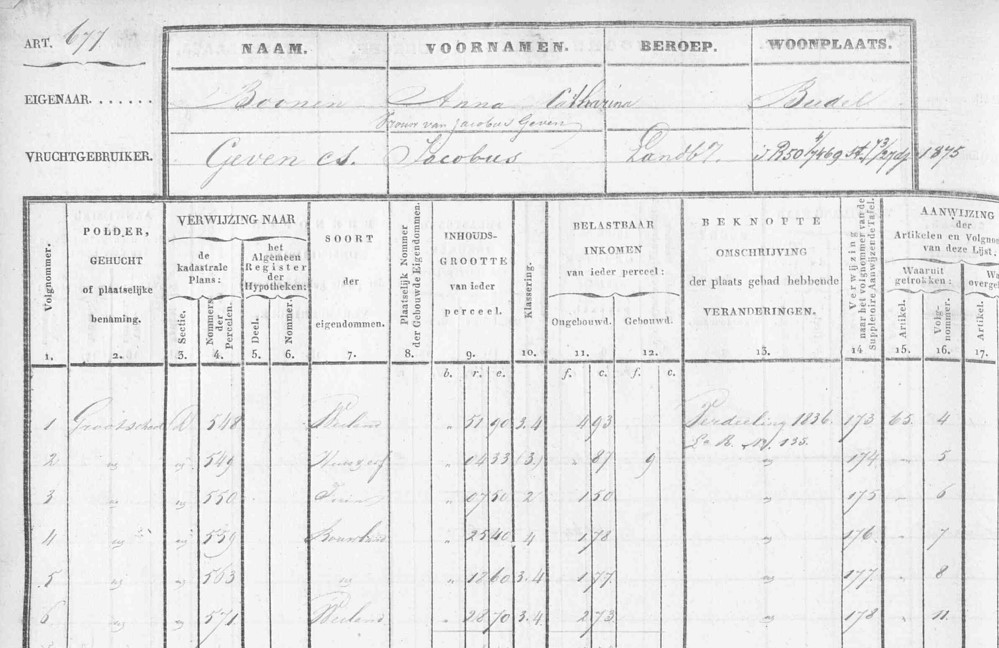 ART. 677
NAAM. VOORNAMEN. BEROEP. WOONPLAATS.
EIGENAAR. . . . . . . Boonen Anna Catharina Budel
Vrouw van Jacobus Geven
VRUCHTGEBRUIKER. Geven cs. Jacobus Landbr 1875
Volgnommer.
POLDER,
GEHUCHT
of plaatselijke
benaming.
VERWIJZING NAAR
de
kadastrale
Plans:
het
Algemeen
Register
der
Hypotheken:
Sectie.
Nommers
der
Perceelen.
Deel.
Nommer.
SOORT
der
eigendommen.
Plaatselijk Nommer
der Gebouwde Eigendommen.
INHOUDS-
GROOTTE
van ieder
perceel.
Klassering.
BELASTBAAR
INKOMEN
van ieder perceel:
Ongebouwd. Gebouwd.
BEKNOTTE
OMSCHRIJVING
der plaats gehad hebbende
VERANDERINGEN.
Verwijzing
naar het volgnommer van de
Suppletoire Aanwijzende Tafel.
AANWIJZING
der
Artikelen en Volgno
van deze Lijst,
Waaruit
getrokken:
Wa
overge
Artikel.
Volg-
nommer.
Artikel.
1. 2. 3. 4. 5. 6. 7. 8. 9. 10. 11. 12. 13. 14 15. 16. 17.
b. r. e. f. c. f. c.
1 Grootschoot D 548 Weiland " 51 90 3.4 4 93 Verdeeling 1836 173 65 4
2 " " 549 " 14 33 (3) " 87 9 " 174 " 5
3 " " 550 " 07 50 2 1 50 " 175 " 6
4 " " 559 Bouwland " 25 40 4 1 78 " 176 " 7
5 " " 563 " " 17 60 3.4 1 77 " 177 " 8
6 " " 571 Weiland " 28 70 3.4 2 73 " 178 " 11